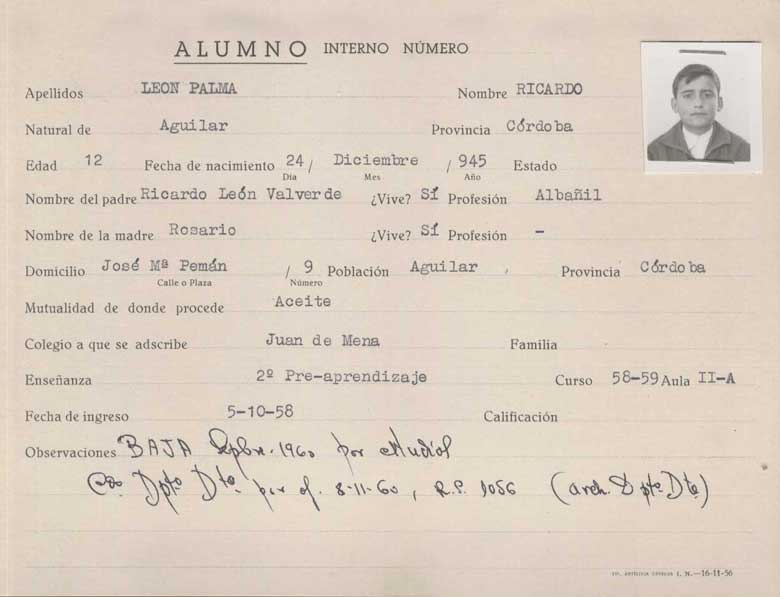 ALUMNO INTERNO NÚMERO
Apellidos LEON PALMA Nombre RICARDO
Natural de Aguilar Provincia Córdoba
Edad 12 Fecha de nacimiento 24 / Diciembre / 945 Estado
Día Mes Año
Nombre del padre Ricardo León Valverde ¿Vive? Sí Profesión Albañil
Nombre de la madre Rosario ¿Vive? Sí Profesión -
Domicilio José Mª Pemán / 9 Población Aguilar , Provincia Córdoba
Calle o Plaza Número
Mutualidad de donde procede Aceite
Colegio a que se adscribe Juan de Mena Familia
Enseñanza 2º Pre-aprendizaje Curso 58-59 Aula II-A
Fecha de ingreso 5-10-58 Calificación
Observaciones BAJA Spbre. 1960 por
Dpto. Dte. por of. 8-11-60, R.S. 1056 (arch. Dpto. Dte)
I. N.—16-11-56